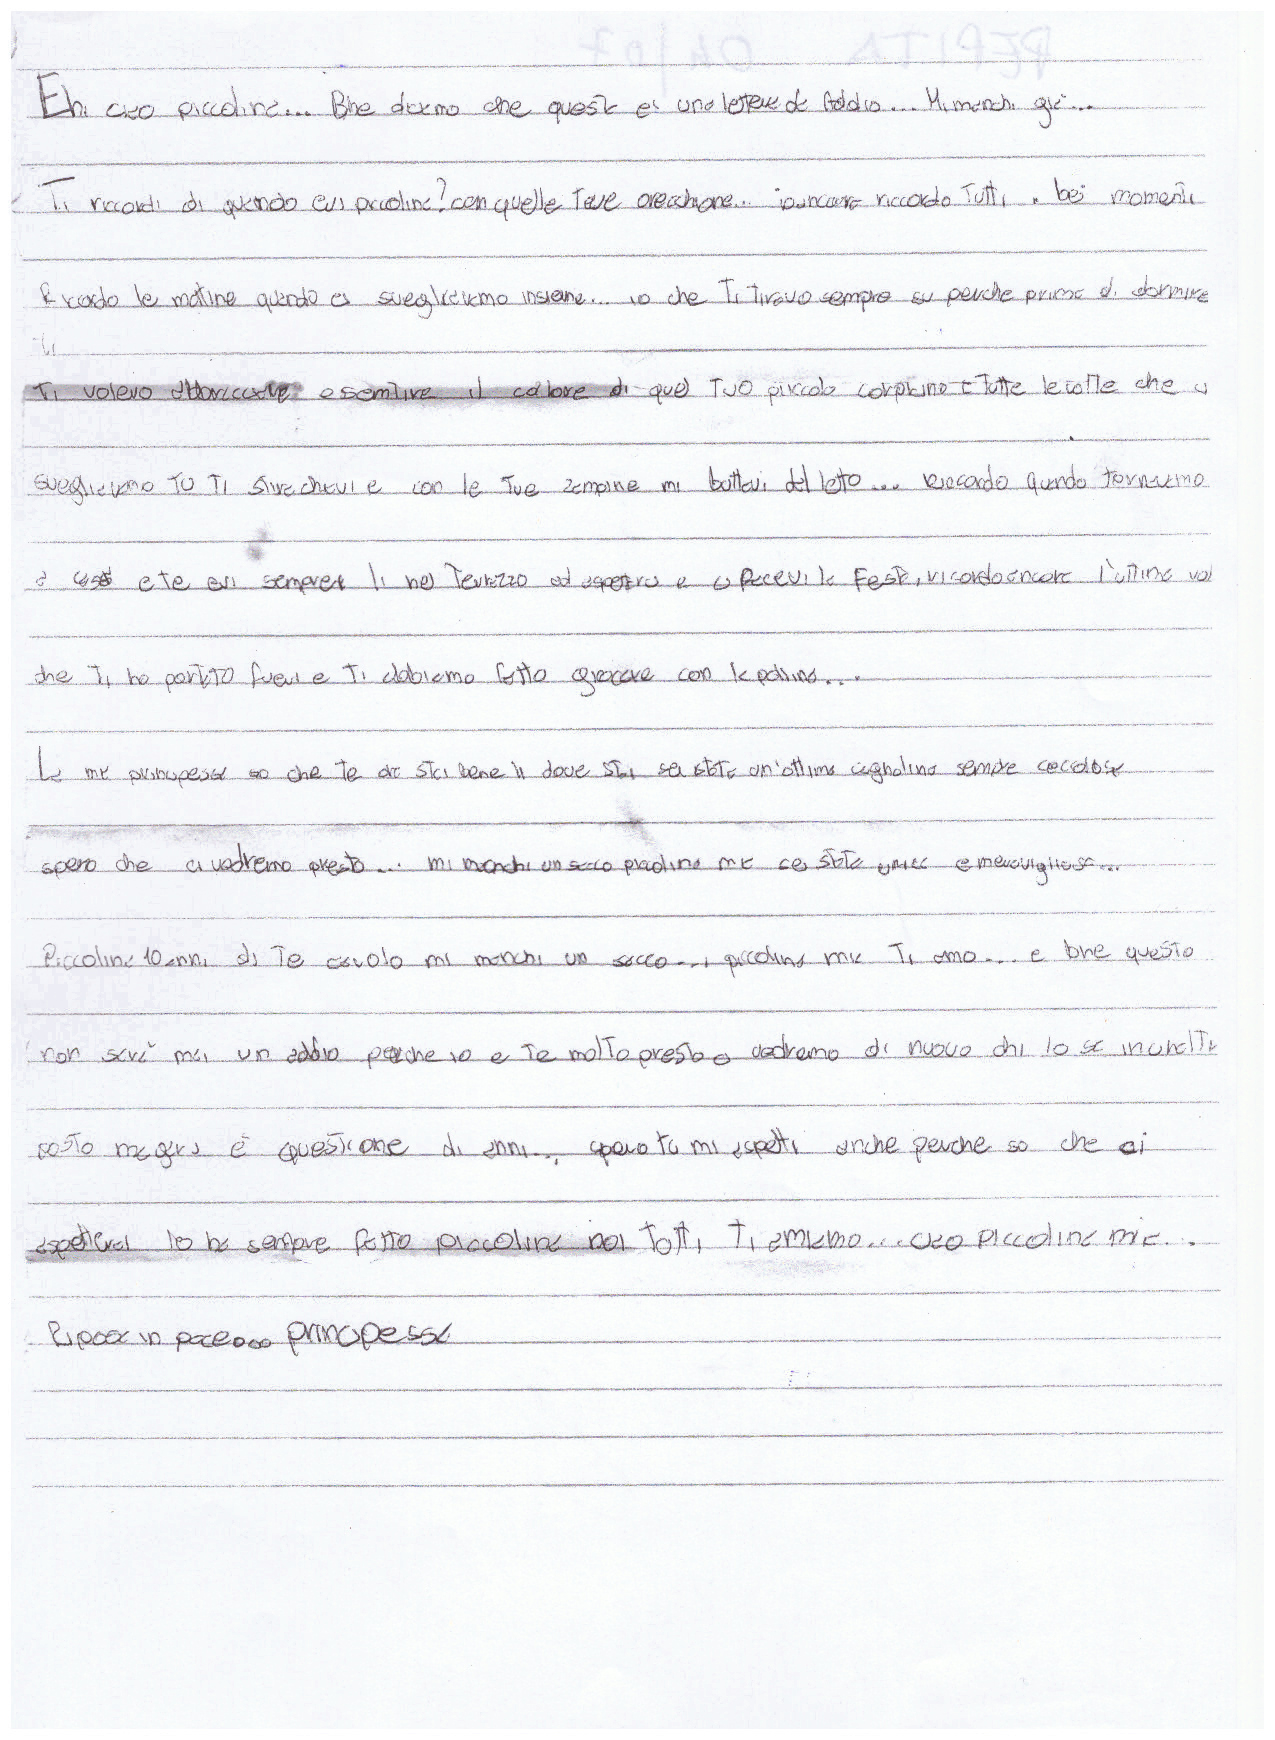 PEPITA 04/07
Ehi ciao piccolina... Bhe diciamo che questa è una lettera di Addio... Mi manchi già...
Ti riccordi di quando eri piccolina? con quelle Tue orecchione... io ancora riccordo Tutti i bei momenti
Ricordo le mattine quando ci svegliavamo insieme... io che Ti Tiravo sempre su perche prima di dormire
Ti
Ti volevo abbracciare e sentire il calore di quel Tuo piccolo corpicino e Tutte le volte che ci
svegliavamo TU Ti stiracchiavi e con le Tue zampine mi buttavi dal letto... Riccordo quando Tornavamo
a casa e te eri sempre lì nel Terrazzo ad aspettarci e ci facevi la Festa, ricordo ancora l'ultima vol
che Ti ho portato fuori e Ti abbiamo fatto giocare con la pallina...
La mia principessa so che Te ora stai bene lì dove stai sei stata un'ottima cagnolina sempre coccolosa
spero che ci vedremo presto... mi manchi un sacco piccolina mia sei stata unica e meravigliosa...
Piccolina 10 anni di Te cavolo mi manchi un sacco... piccolina mia Ti amo... e bhe questo
non sarà mai un addio perche io e Te molto presto ci vedremo di nuovo chi lo sa in un'altro
posto magari è questione di anni... spero tu mi aspetti anche perche so che ci
aspetterai lo hai sempre fatto piccolina noi Tutti Ti amiamo... ciao Piccolina mia...
Riposa in pace... principessa